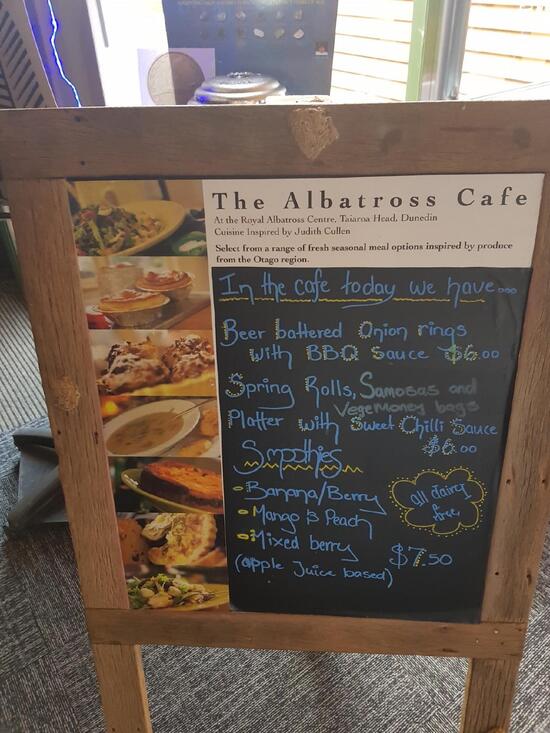 The Albatross Cafe
At the Royal Albatross Centre, Taiaroa Head, Dunedin
Cuisine Inspired by Judith Cullen
Select from a range of fresh seasonal meal options inspired by produce
from the Otago region.
In the cafe today we have...
Beer battered Onion rings
with BBQ Sauce $6.00
Spring Rolls, Samosas and
Vege Money bags
Platter with Sweet Chilli Sauce
$6.00
Smoothies
- Banana/Berry
- Mango & Peach
- Mixed berry
(apple Juice based)
all dairy
free
$7.50